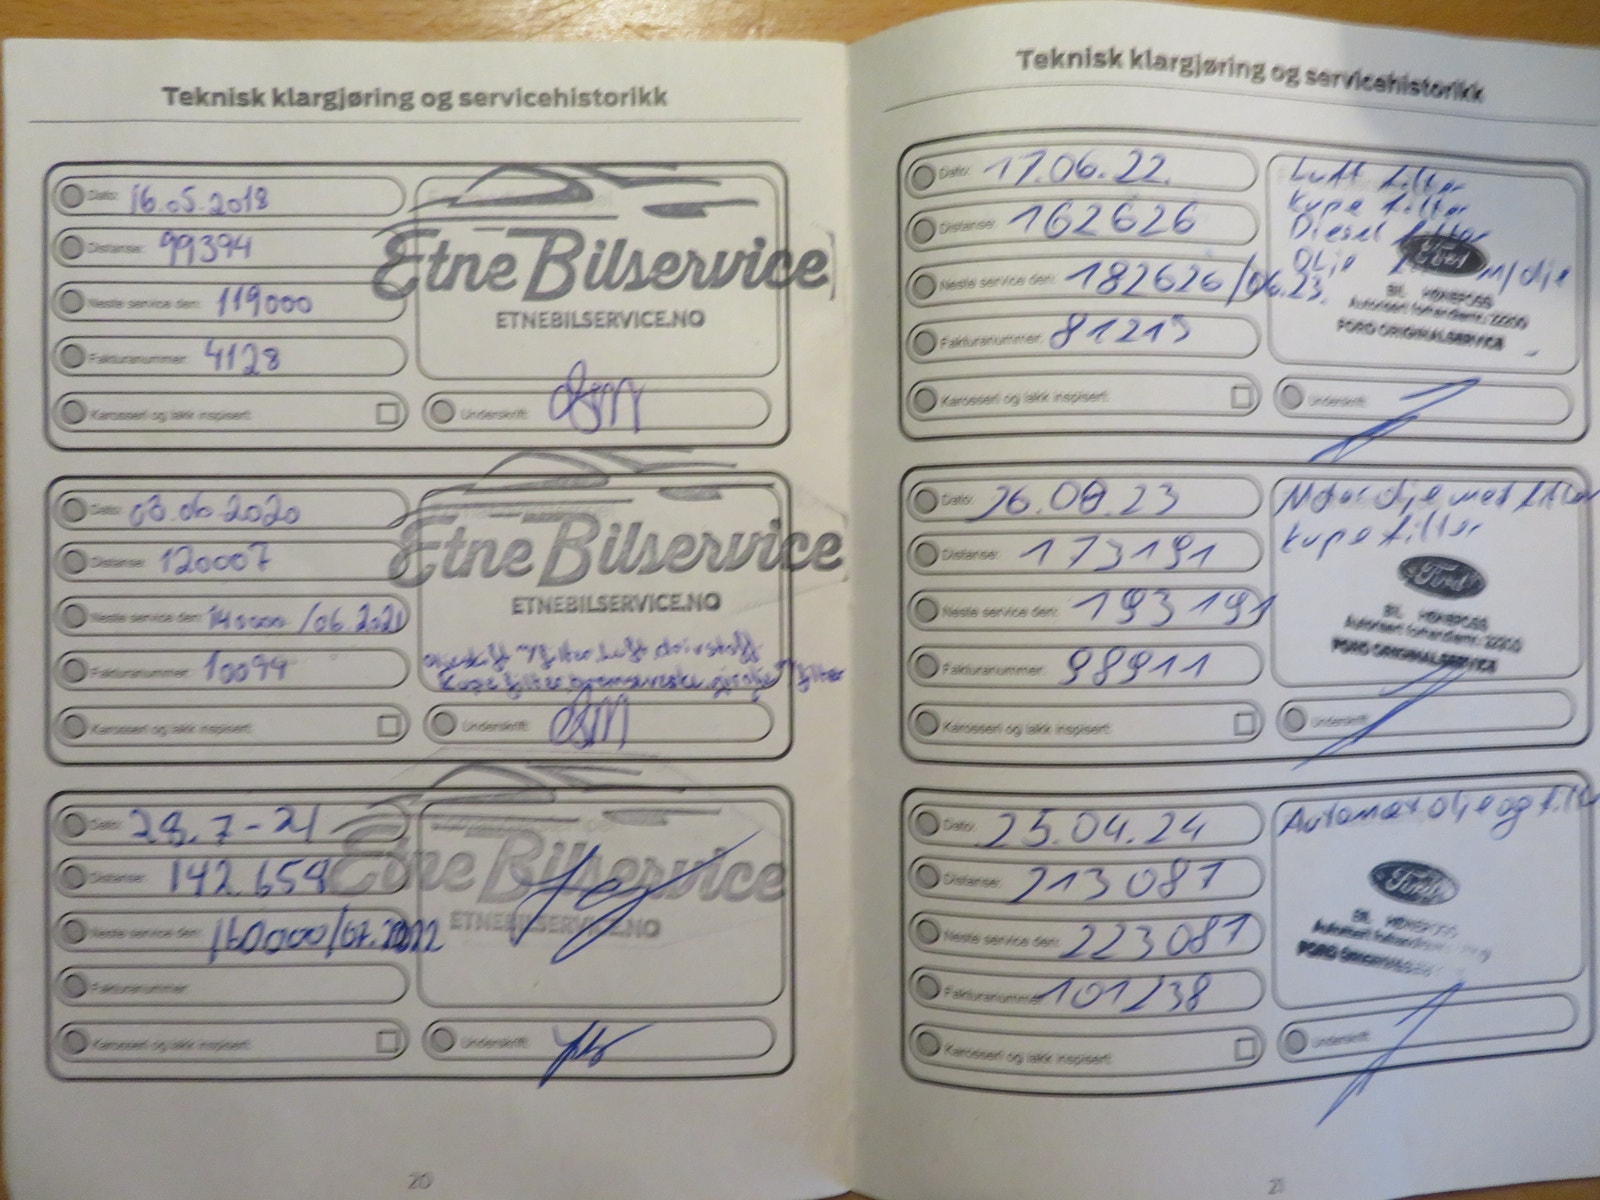 Teknisk klargjøring og servicehistorikk
Dato: 16.05.2018
Distanse: 99394
Neste service den: 119000
Fakturanummer: 4128
Karosseri og lakk inspisert:
Etne Bilservice
ETNEBILSERVICE.NO
Underskrift:
Dato: 03.06.2020
Distanse: 120007
Neste service den: 140000/06.2021
Fakturanummer: 10094
Karosseri og lakk inspisert:
Etne Bilservice
ETNEBILSERVICE.NO
Oljeskift m/filter, luft, drivstoff
Kupefilter, bremsevæske, girolje m/filter
Underskrift:
Dato: 28.7-21
Distanse: 142.659
Neste service den: 160000/07.2022
Fakturanummer:
Karosseri og lakk inspisert:
Etne Bilservice
ETNEBILSERVICE.NO
Underskrift:
20
Teknisk klargjøring og servicehistorikk
Dato: 17.06.22.
Distanse: 162626
Neste service den: 182626/06.23.
Fakturanummer: 81213
Karosseri og lakk inspisert:
Luft filter
Kupe filter
Diesel filter
Olje m/olje
Ford
FORD ORIGINALSERVICE
Underskrift:
Dato: 26.08.23
Distanse: 173191
Neste service den: 193191
Fakturanummer: 98911
Karosseri og lakk inspisert:
Motorolje med filter
Kupe filter
Ford
FORD ORIGINALSERVICE
Underskrift:
Dato: 25.04.24
Distanse: 213087
Neste service den: 223087
Fakturanummer: 101238
Karosseri og lakk inspisert:
Automat olje og filter
Ford
FORD
Underskrift:
21